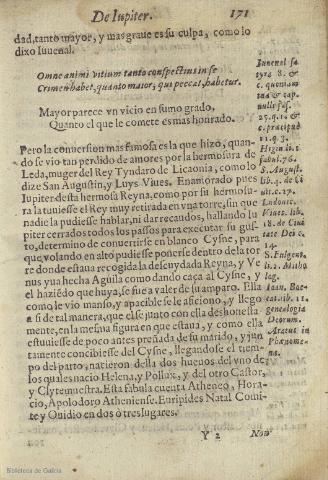 De Iupiter. 171
dad, tanto mayor, y mas graue es su culpa, como lo
dixo Iuuenal.
Omne animi vitium tanto conspectius in se
Crimen habet, quanto maior, qui peccat, habetur.
Mayor parece vn vicio en sumo grado,
Quanto el que le comete es mas honrado.
Pero la conuersion mas famosa es la que hizo, quan-
do se vio tan perdido de amores por la hermosura de
Leda, muger del Rey Tyndaro de Licaonia, como lo
dize San Augustin, y Luys Viues. Enamorado pues
Iupiter desta hermosa Reyna, como por su hermosu-
ra la tuuiesse el Rey muy retirada en vna torre, sin que
nadie la pudiesse hablar, ni dar recaudos, hallando Iu
piter cerrados todos los passos para executar su gus-
to, determino de conuertirse en blanco Cysne, para
que volando en alto pudiesse ponerse dentro de la tor
re donde estaua recogida la descuydada Reyna, y Ve
nus yua hecha Aguila como dando caça al Cysne, y
el haziẽdo que huya, se fue a valer de su amparo. Ella
como le vio manso, y apacible se le aficionò, y llegò
a si de tal manera, que el se juntò con ella deshonesta
mente, en la mesma figura en que estaua, y como ella
estuuiesse de poco antes preñada de su marido, y jun
tamente concibiesse del Cysne, llegandose el tiem-
po del parto, nacieron della dos hueuos, del vno de
los quales nacio Helena, y Pollux, y del otro Castor,
y Clytemnestra. Esta fabula cuenta Atheneo, Hora-
cio, Apolodoro Atheniense, Euripides, Natal Comi-
te, y Ouidio en dos ò tres lugares.
Y 2 Non
Iuuenal sa
tyra 8. &
c. quemam
&
nulli fas.
25. q. 1. &
c. præcipuè
11. q. 3.
Higin. li. 1
fabul. 76.
S. August.
lib. 4. de Ci
uit. c. 17.
Ludouic.
Viues. lib.
18. de Ciui
tate Dei c.
14.
S. Fulgent.
li. 2. Mitho
log.
Ioan. Boc-
cat. lib. 11.
genealogia
Deorum.
Aratus in
Phænome-
nis.
Biblioteca de Galicia